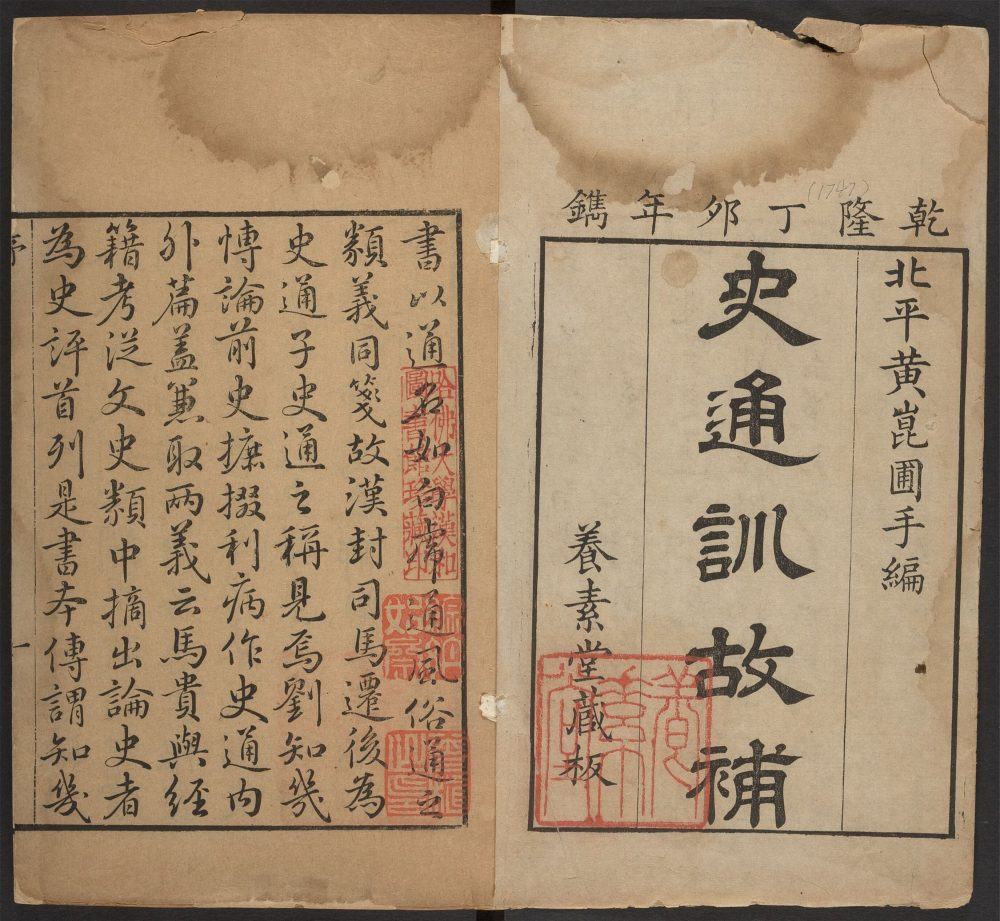 乾隆丁夘年鐫
(1747)
北平黄崑圃手編
史通訓故補
養素堂藏板
養素堂
書以通名如白虎通風俗通之
類義同箋故漢封司馬遷後為
史通子史通之稱見焉劉知幾
愽論前史摭掇利病作史通内
外篇盖兼取兩義云馬貴與經
籍考從文史類中摘出論史者
為史評首列是書本傳謂知幾
序
一
哈佛大學漢和
圖書館珍藏印